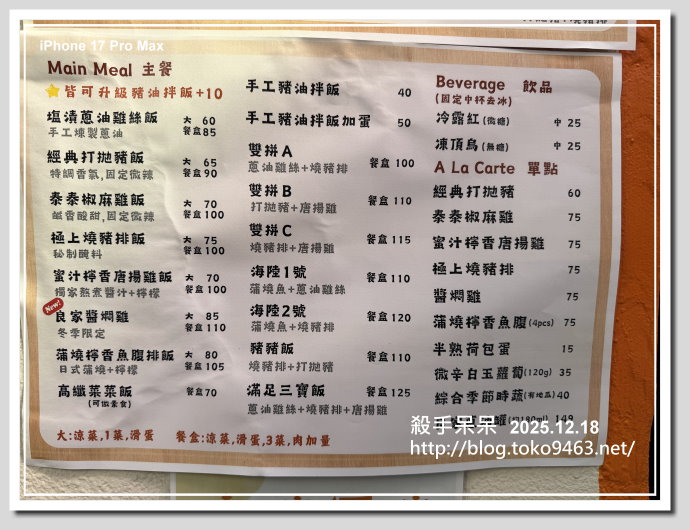 iPhone 17 Pro Max
Main Meal 主餐
皆可升級豬油拌飯+10
塩漬蔥油雞絲飯 大 60
手工煉製蔥油 餐盒85
經典打拋豬飯 大 65
特調香氣,固定微辣 餐盒90
泰泰椒麻雞飯 大 70
鹹香酸甜,固定微辣 餐盒100
極上燒豬排飯 大 75
秘制醃料 餐盒100
蜜汁檸香唐揚雞飯 大 70
獨家熬煮醬汁+檸檬 餐盒100
New!
良家醬燜雞 大 85
冬季限定 餐盒110
蒲燒檸香魚腹排飯 大 80
日式蒲燒+檸檬 餐盒105
高纖菜菜飯 餐盒70
(可做素食)
大:涼菜,1菜,滑蛋 餐盒:涼菜,滑蛋,3菜,肉加量
手工豬油拌飯 40
手工豬油拌飯加蛋 50
雙拼A 餐盒 100
蔥油雞絲+燒豬排
雙拼B 餐盒 110
打拋豬+唐揚雞
雙拼C 餐盒 115
燒豬排+唐揚雞
海陸1號 餐盒 110
蒲燒魚+蔥油雞絲
海陸2號 餐盒 120
蒲燒魚+燒豬排
豬豬飯 餐盒 110
燒豬排+打拋豬
滿足三寶飯 餐盒 125
蔥油雞絲+燒豬排+唐揚雞
Beverage 飲品
(固定中杯去冰)
冷露紅(微糖) 中 25
凍頂烏(無糖) 中 25
A La Carte 單點
經典打拋豬 60
泰泰椒麻雞 75
蜜汁檸香唐揚雞 75
極上燒豬排 75
醬燜雞 75
蒲燒檸香魚腹(4pcs) 75
半熟荷包蛋 15
微辛白玉蘿蔔(120g) 35
綜合季節時蔬(有地瓜) 40
180ml) 149
殺手呆呆 2025.12.18
http://blog.toko9463.net/